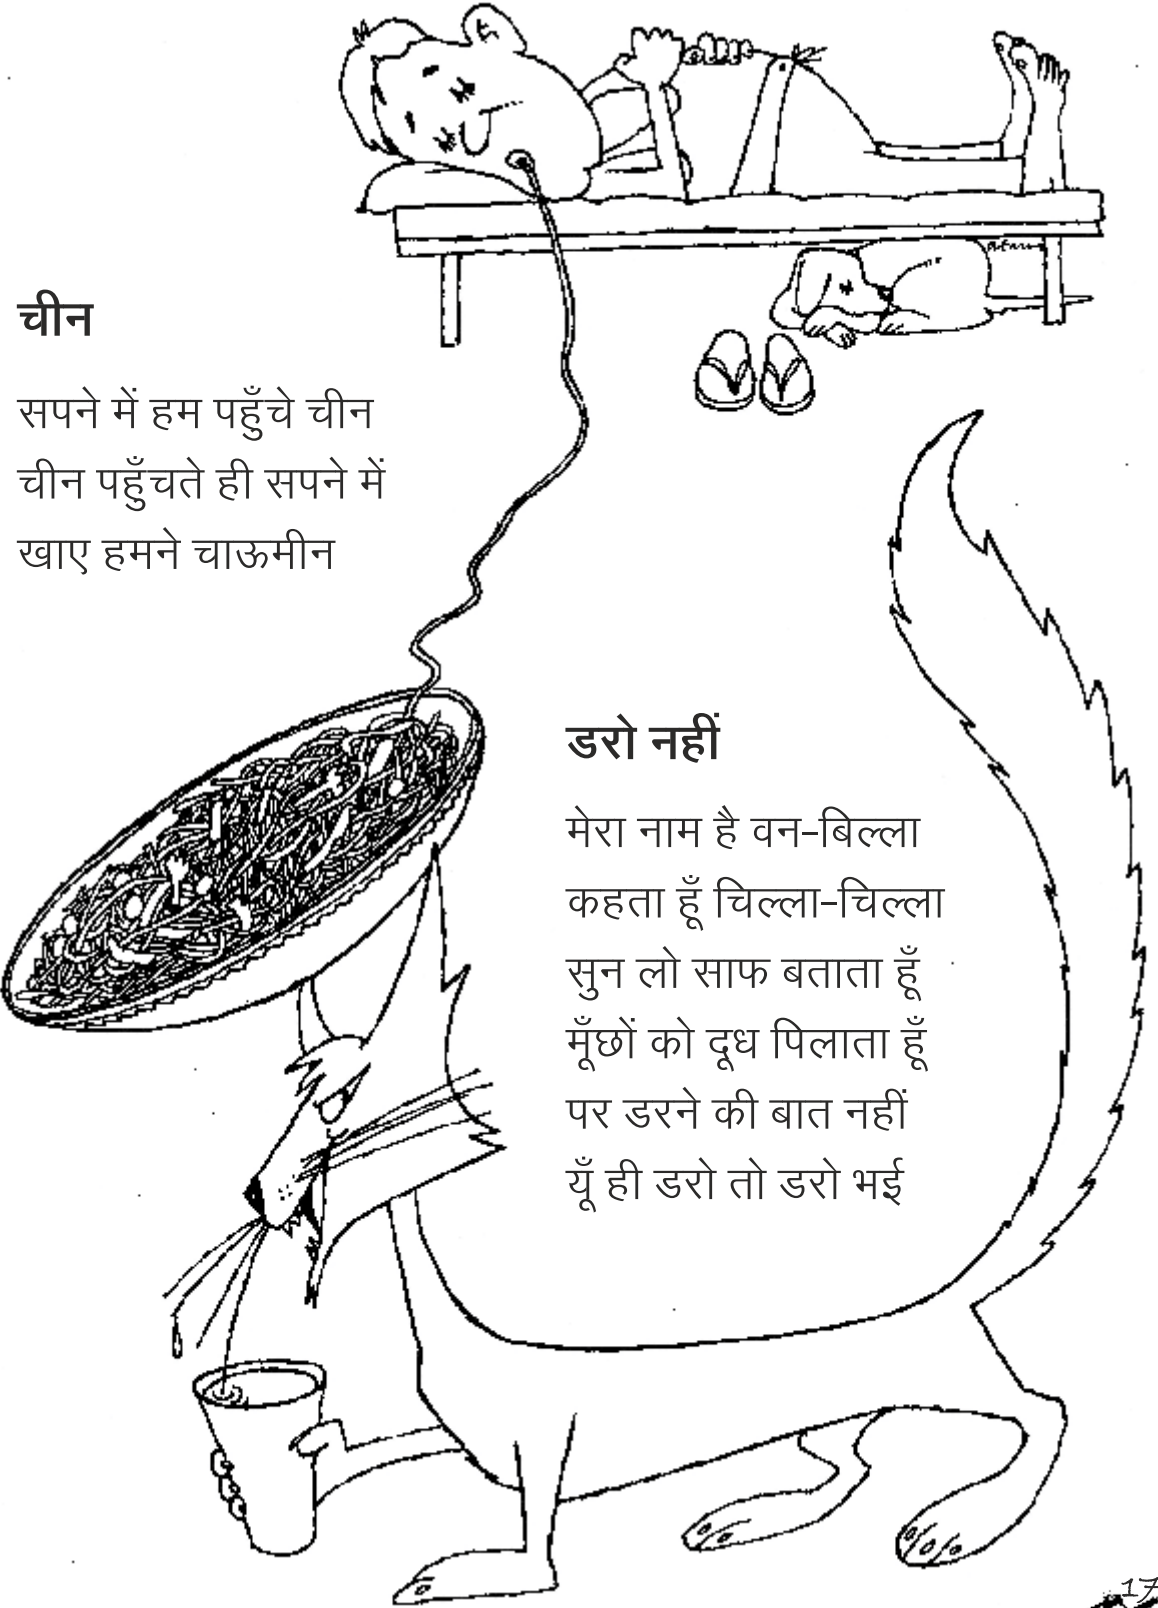 चीन
सपने में हम पहुँचे चीन
चीन पहुँचते ही सपने में
खाए हमने चाऊमीन
डरो नहीं
मेरा नाम है वन-बिल्ला
कहता हूँ चिल्ला-चिल्ला
सुन लो साफ बताता हूँ
मूँछों को दूध पिलाता हूँ
पर डरने की बात नहीं
यूँ ही डरो तो डरो भई
17